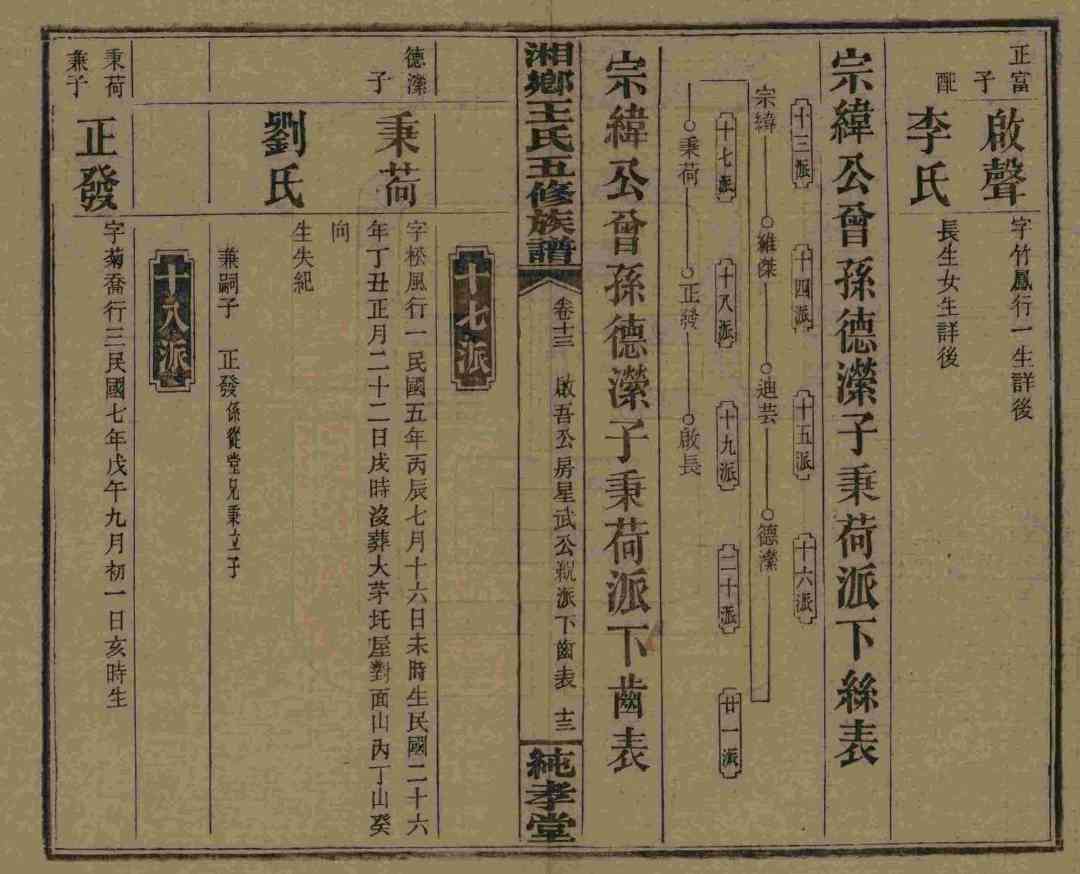 正富
子
啟聲
字竹鳳行一生詳後
配
李氏
長生女生詳後
宗緯公曾孫德濚子秉荷派下絲表
十三派
十四派
十五派
十六派
宗緯
維傑
迪芸
德濚
十七派
十八派
十九派
二十派
廿一派
秉荷
正發
啟長
宗緯公曾孫德濚子秉荷派下齒表
湘鄉王氏五修族譜
卷十三
啟吾公房星武公親派下齒表
十三
純孝堂
十七派
德濚
子
秉荷
字松風行一民國五年丙辰七月十六日未時生民國二十六
年丁丑正月二十二日戌時沒葬大茅坵屋對面山丙丁山癸
向
劉氏
生失紀
兼嗣子 正發係從堂兄秉立子
十八派
秉荷
兼子
正發
字菊喬行三民國七年戊午九月初一日亥時生